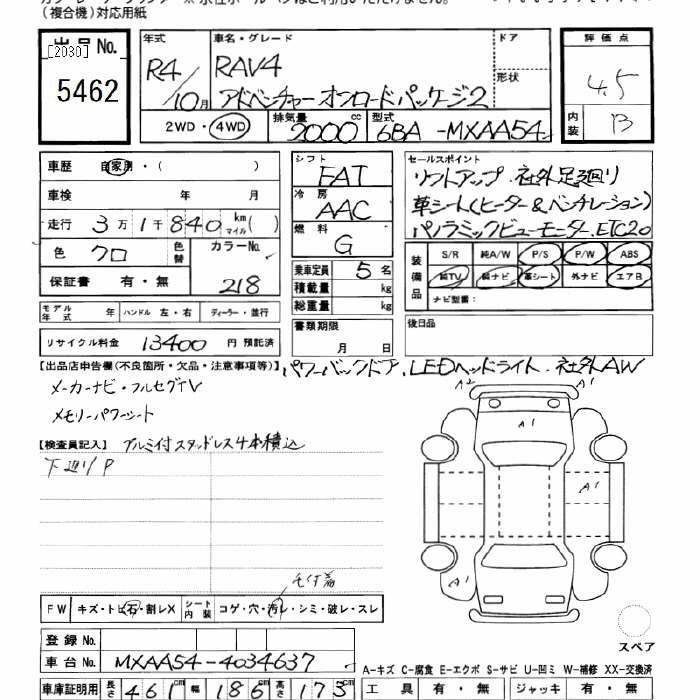 (複合機)対応用紙
出品No. [2030] 5462
年式 R4/10月
車名・グレード RAV4 アドベンチャー オンロードパッケージ2
ドア
形状
評価点 4.5
内装 B
2WD・4WD 排気量 2000 cc 型式 6BA-MXAA54
車歴 自家用・( )
車検 年 月
走行 3万1千840 km マイル ( )
色 クロ 色替 カラーNo. 218
保証書 有・無
シフト FAT
冷房 AAC
燃料 G
乗車定員 5名
積載量 kg
総重量 kg
セールスポイント
リフトアップ.社外足廻り
革シート(ヒーター&ベンチレーション)
パノラミックビューモニター.ETC2.0
装備品 S/R 純A/W P/S P/W ABS
純TV 純ナビ 革シート 外ナビ エアB
ナビ型番:
モデル年式 年 ハンドル 左・右 ディーラー・並行
書類期限 月 日
後日品
リサイクル料金 13400 円 預託済
【出品店申告欄(不良箇所・欠品・注意事項等)】 パワーバックドア.LEDヘッドライト.社外AW
メーカーナビ・フルセグTV
メモリーパワーシート
【検査員記入】 アルミ付スタッドレス4本積込
下廻りP
A2 A1
A1
A1
A1
FW キズ・トビ石・割レX シート内装 コゲ・穴・汚レ・シミ・破レ・スレ
スペア
登録No.
車台No. MXAA54-4034637
A-キズ C-腐食 E-エクボ S-サビ U-凹ミ W-補修 XX-交換済
車庫証明用 長さ 461 cm 幅 186 cm 高さ 173 cm
工具 有・無 ジャッキ 有・無